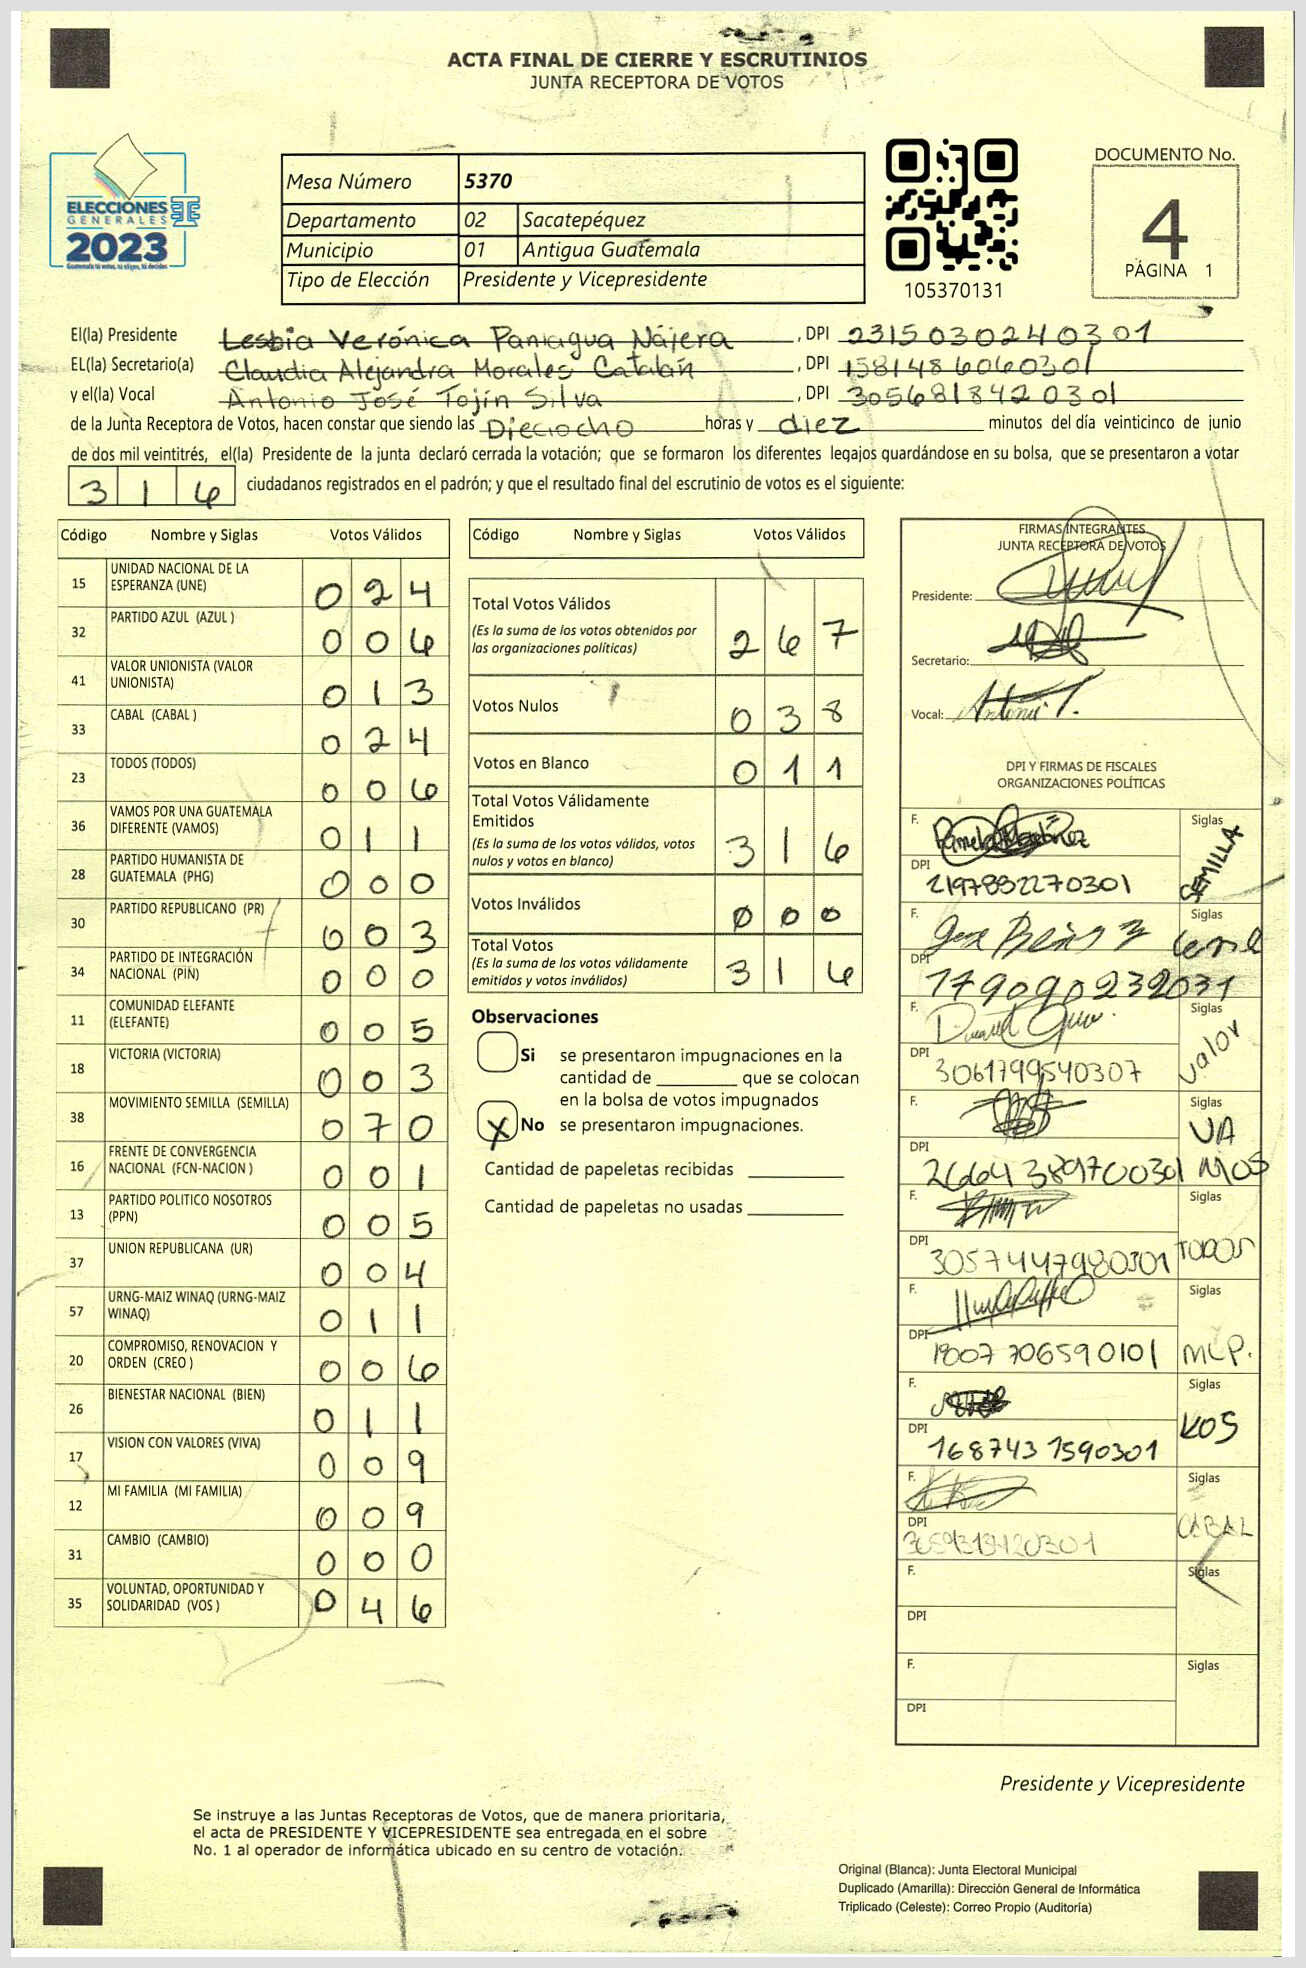 ACTA FINAL DE CIERRE Y ESCRUTINIOS
JUNTA RECEPTORA DE VOTOS
ELECCIONES
GENERALES
2023
Guatemala tú votas, tú eliges, tú decides
Mesa Número 5370
Departamento 02 Sacatepéquez
Municipio 01 Antigua Guatemala
Tipo de Elección Presidente y Vicepresidente
105370131
DOCUMENTO No.
4
PÁGINA 1
El(la) Presidente Lesbia Verónica Paniagua Nájera, DPI 2315030240301
EL(la) Secretario(a) Claudia Alejandra Morales Catalán, DPI 1581486060301
y el(la) Vocal Antonio José Tojín Silva, DPI 3056818420301
de la Junta Receptora de Votos, hacen constar que siendo las Dieciocho horas y diez minutos del día veinticinco de junio
de dos mil veintitrés, el(la) Presidente de la junta declaró cerrada la votación; que se formaron los diferentes legajos guardándose en su bolsa, que se presentaron a votar
3 1 6 ciudadanos registrados en el padrón; y que el resultado final del escrutinio de votos es el siguiente:
Código Nombre y Siglas Votos Válidos
15 UNIDAD NACIONAL DE LA ESPERANZA (UNE) 0 2 4
32 PARTIDO AZUL (AZUL ) 0 0 6
41 VALOR UNIONISTA (VALOR UNIONISTA) 0 1 3
33 CABAL (CABAL ) 0 2 4
23 TODOS (TODOS) 0 0 6
36 VAMOS POR UNA GUATEMALA DIFERENTE (VAMOS) 0 1 1
28 PARTIDO HUMANISTA DE GUATEMALA (PHG) 0 0 0
30 PARTIDO REPUBLICANO (PR) 0 0 3
34 PARTIDO DE INTEGRACIÓN NACIONAL (PIN) 0 0 0
11 COMUNIDAD ELEFANTE (ELEFANTE) 0 0 5
18 VICTORIA (VICTORIA) 0 0 3
38 MOVIMIENTO SEMILLA (SEMILLA) 0 7 0
16 FRENTE DE CONVERGENCIA NACIONAL (FCN-NACION ) 0 0 1
13 PARTIDO POLITICO NOSOTROS (PPN) 0 0 5
37 UNION REPUBLICANA (UR) 0 0 4
57 URNG-MAIZ WINAQ (URNG-MAIZ WINAQ) 0 1 1
20 COMPROMISO, RENOVACION Y ORDEN (CREO ) 0 0 6
26 BIENESTAR NACIONAL (BIEN) 0 1 1
17 VISION CON VALORES (VIVA) 0 0 9
12 MI FAMILIA (MI FAMILIA) 0 0 9
31 CAMBIO (CAMBIO) 0 0 0
35 VOLUNTAD, OPORTUNIDAD Y SOLIDARIDAD (VOS ) 0 4 6
Código Nombre y Siglas Votos Válidos
Total Votos Válidos 2 6 7
(Es la suma de los votos obtenidos por
las organizaciones políticas)
Votos Nulos 0 3 8
Votos en Blanco 0 1 1
Total Votos Válidamente
Emitidos 3 1 6
(Es la suma de los votos válidos, votos
nulos y votos en blanco)
Votos Inválidos 0 0 0
Total Votos 3 1 6
(Es la suma de los votos válidamente
emitidos y votos inválidos)
Observaciones
Si se presentaron impugnaciones en la
cantidad de ________ que se colocan
en la bolsa de votos impugnados
X No se presentaron impugnaciones.
Cantidad de papeletas recibidas
Cantidad de papeletas no usadas
FIRMAS INTEGRANTES
JUNTA RECEPTORA DE VOTOS
Presidente:
Secretario:
Vocal: Antonio T.
DPI Y FIRMAS DE FISCALES
ORGANIZACIONES POLÍTICAS
F. Siglas
DPI 2197882270301 SEMILLA
F. Siglas
DPI 179090232031
F. Siglas
DPI 3061799540307 Valor
F. Siglas
DPI 2664389700301 VAMOS
F. Siglas
DPI 3057447980301 TODOS
F. Siglas
DPI 1807706590101 MLP.
F. Siglas
DPI 1687431590301 VOS
F. Siglas
DPI CABAL
F. Siglas
DPI
F. Siglas
DPI
Presidente y Vicepresidente
Se instruye a las Juntas Receptoras de Votos, que de manera prioritaria,
el acta de PRESIDENTE Y VICEPRESIDENTE sea entregada en el sobre
No. 1 al operador de informática ubicado en su centro de votación.
Original (Blanca): Junta Electoral Municipal
Duplicado (Amarilla): Dirección General de Informática
Triplicado (Celeste): Correo Propio (Auditoría)